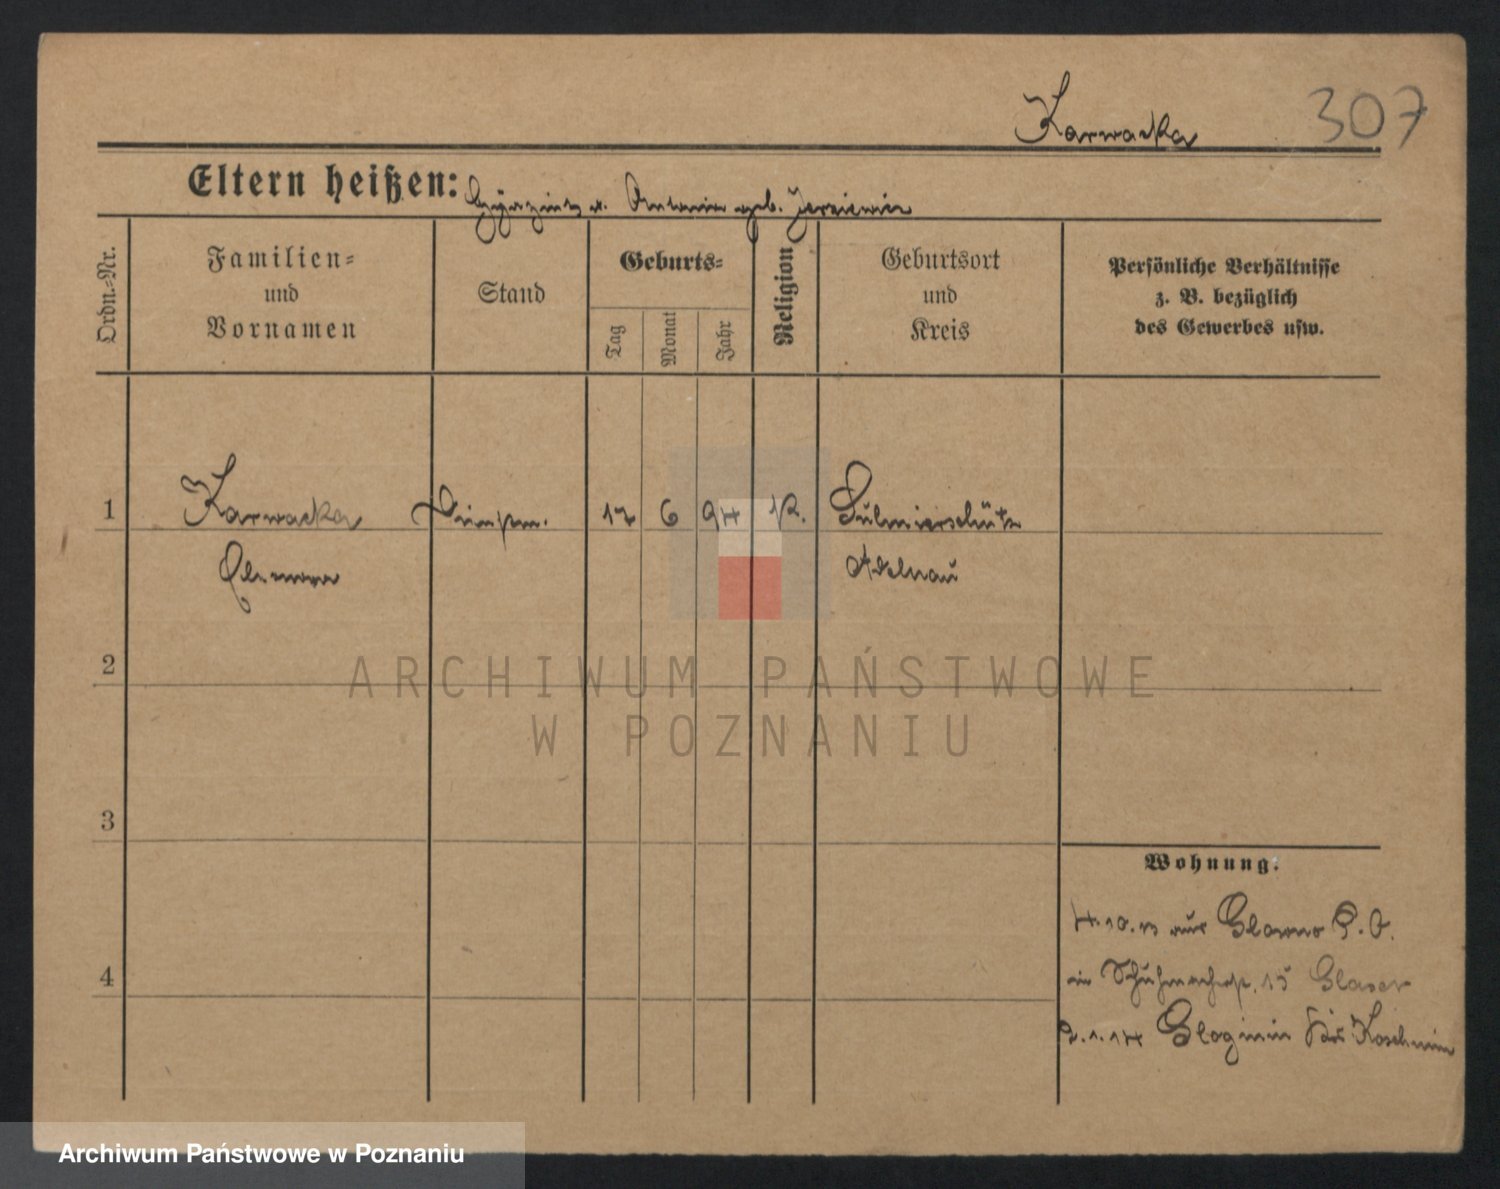 Karwacka 307
Eltern heißen: Hyazinth u. Antonie geb.
Ordn.-Nr.
Familien-
und
Vornamen
Stand
Geburts-
Tag
Monat
Jahr
Religion
Geburtsort
und
Kreis
Persönliche Verhältnisse
z. B. bezüglich
des Gewerbes usw.
1 Karwacka 17 6 94 K. Sulmierschütz
Adelnau
2
3
4
Wohnung:
4.10.13 aus Glowno P. O.
in Schuhmacherstr. 15 Glaser
2.1.14 Kr. Koschmin
ARCHIWUM PAŃSTWOWE
W POZNANIU
Archiwum Państwowe w Poznaniu